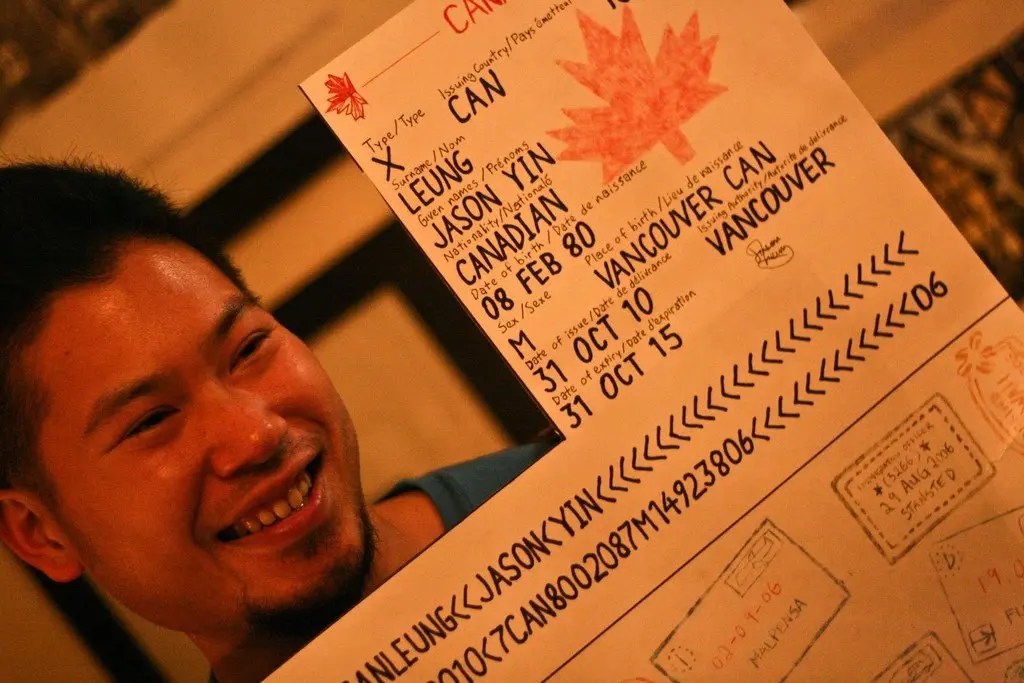 CAN
Type/Type
Issuing Country/Pays émetteur
X
CAN
Surname/Nom
LEUNG
Given names/Prénoms
JASON YIN
Nationality/Nationalité
CANADIAN
Date of birth/Date de naissance
08 FEB 80
Sex/Sexe
Place of birth/Lieu de naissance
M
VANCOUVER CAN
Date of issue/Date de délivrance
Issuing Authority/Autorité de délivrance
31 OCT 10
VANCOUVER
Date of expiry/Date d'expiration
31 OCT 15
ANLEUNG<<JASON<YIN<<<<<<<<<<<<<<<<<<<
010<7CAN8002087M14923806<<<<<<<<<<<<<06
(3266)
29 AUG 2006
STANSTED
02-09-06
MALPENSA
D
19.0